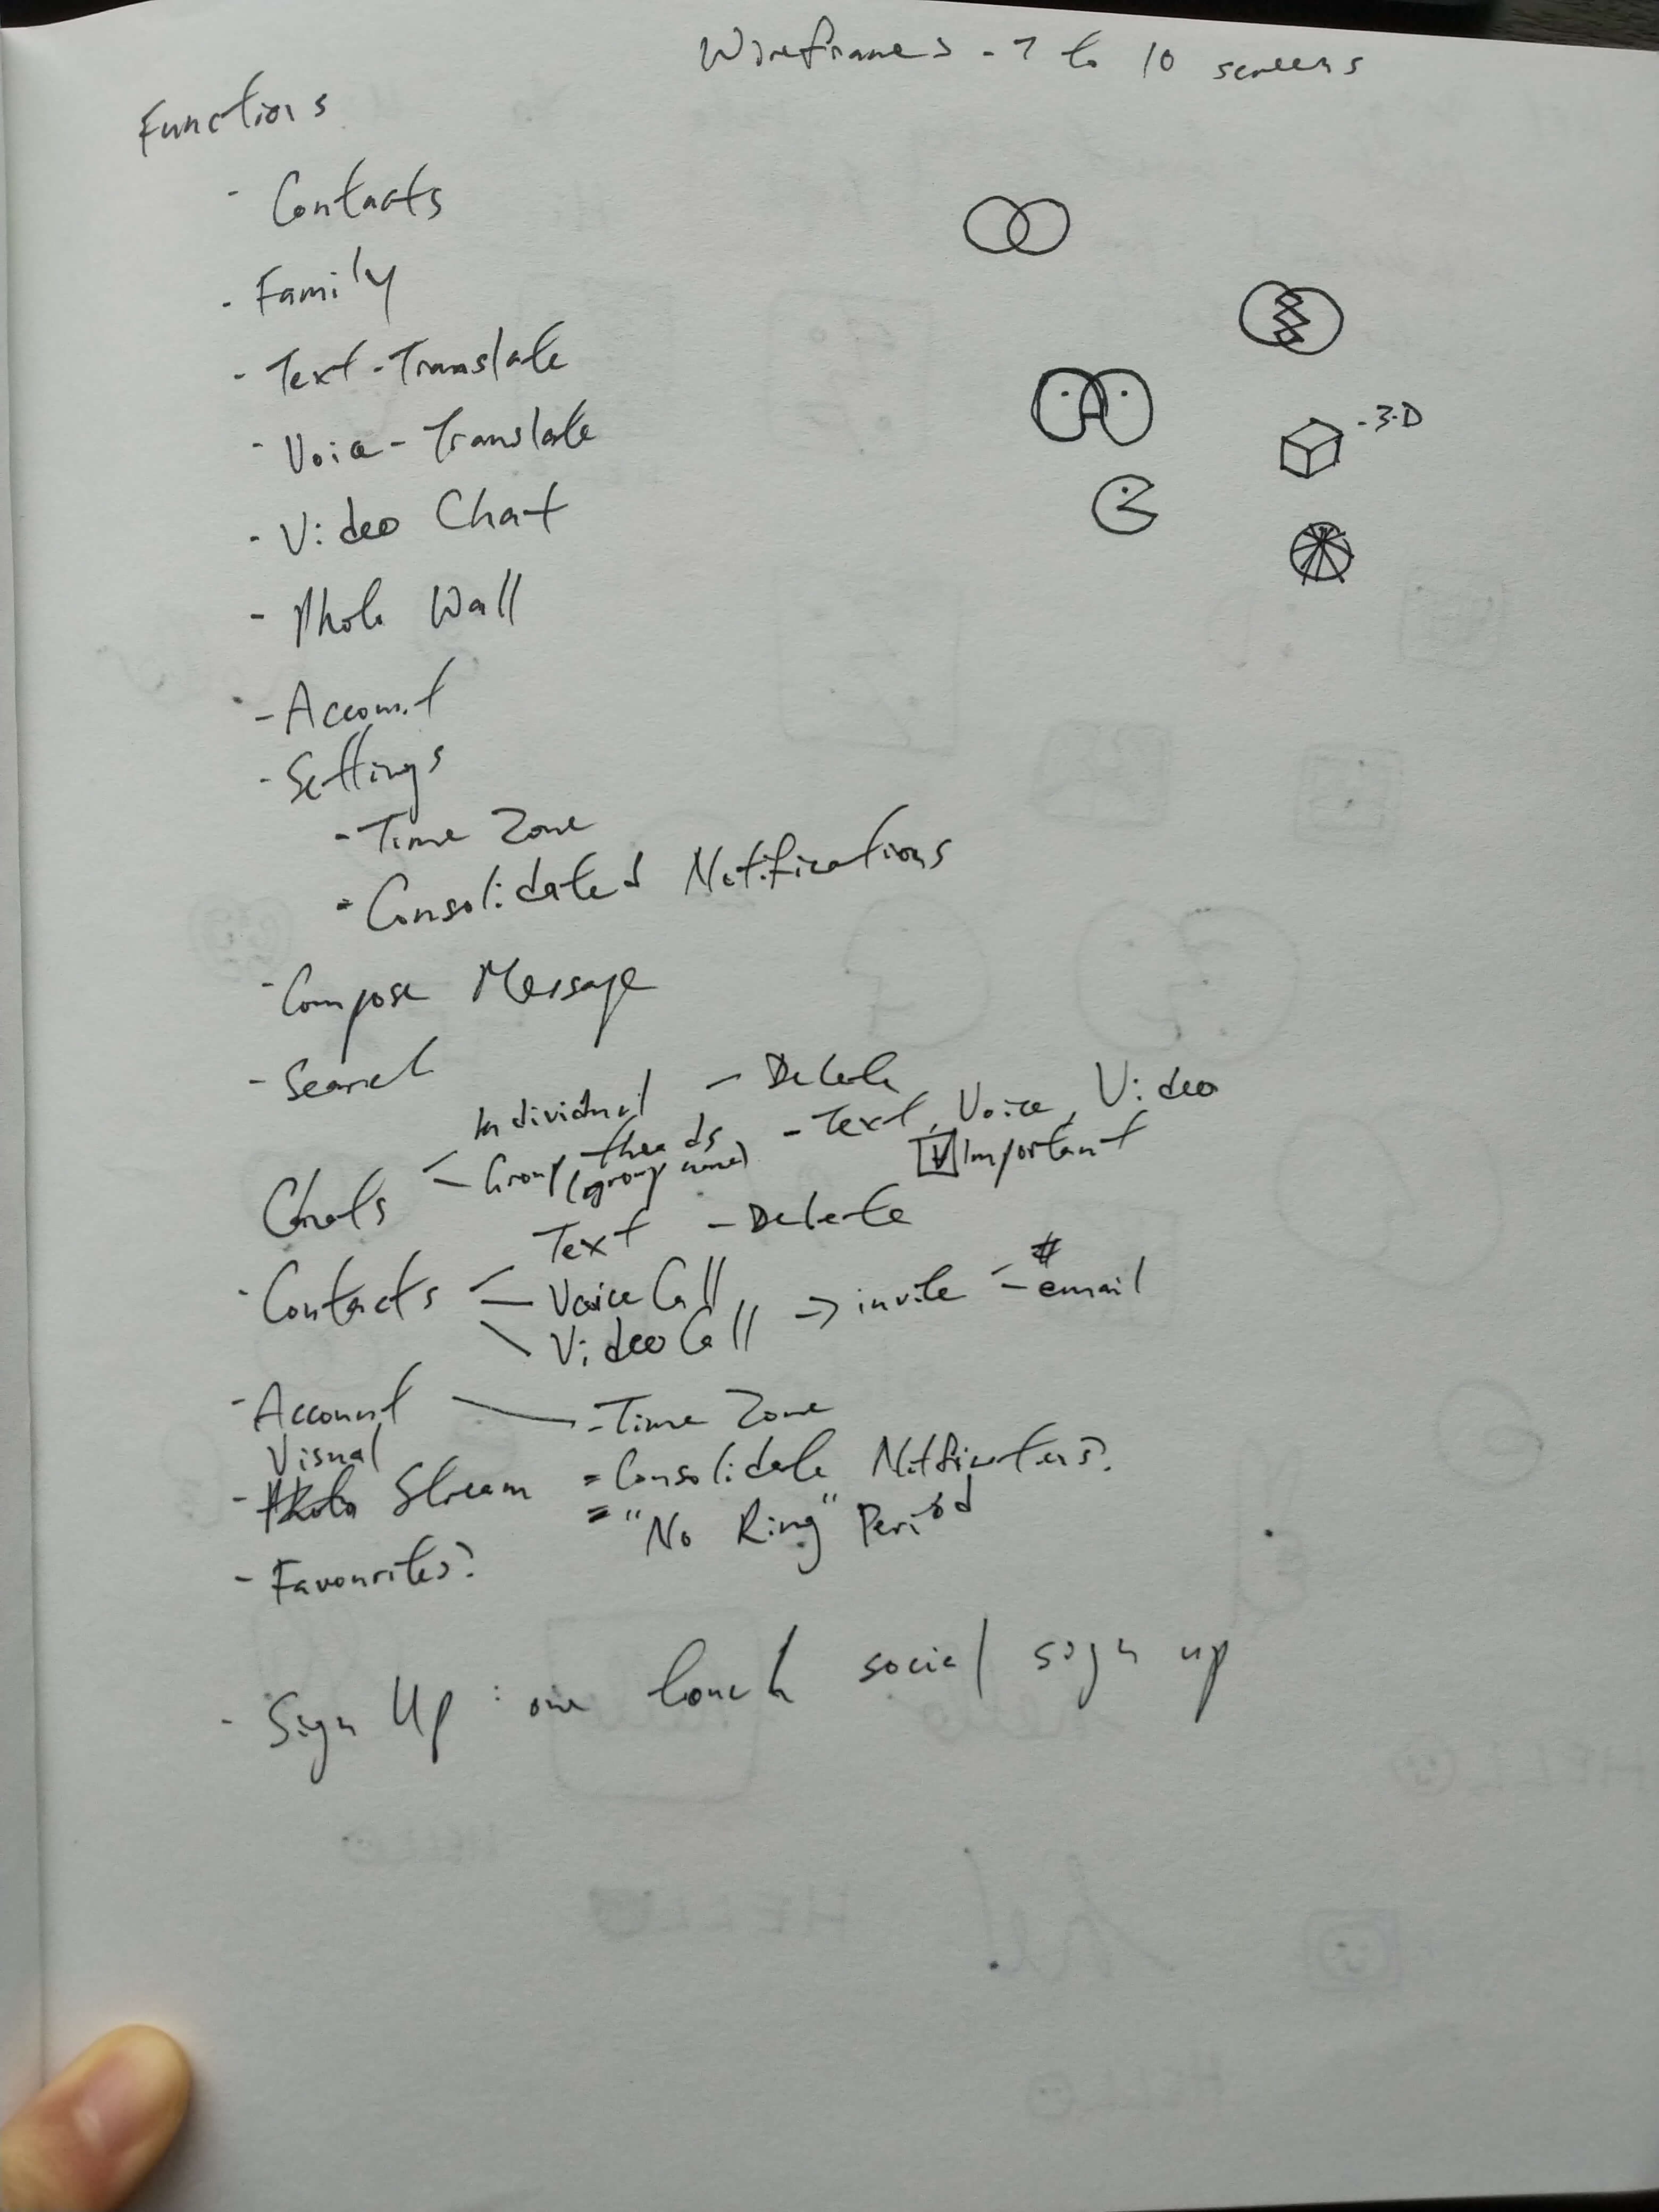 Wireframes - 7 to 10 screens
Functions
- Contacts
- Family
- Text-Translate
- Voice-Translate
- Video Chat
- Photo Wall
- Account
- Settings
- Time Zone
- Consolidated Notifications
- Compose Message
- Search
Chats
Individual - Delete
Group threads - Text, Voice, Video
(group name) Important
- Contacts
Text - Delete
Voice Call
Video Call -> invite - # email
- Account - Time Zone
Visual
- Photo Stream - Consolidate Notifications?
- "No Ring" Period
- Favourites?
- Sign Up: one touch social sign up
- 3-D
HELLO
HELLO
HELLO
HELLO
hello